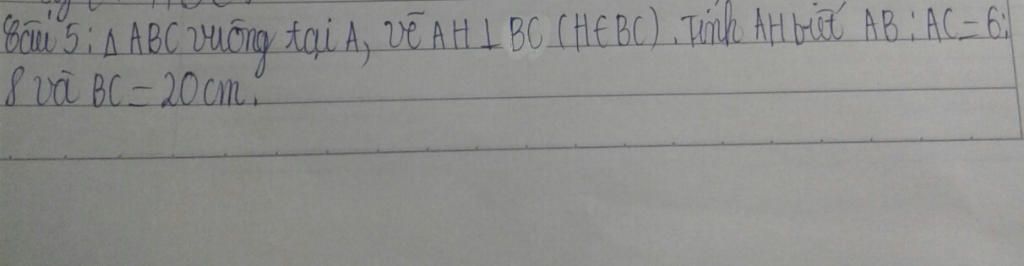 Bài 5: Δ ABC vuông tại A, vẽ AH ⊥ BC (H∈BC). Tính AH biết AB : AC = 6 :
8 và BC = 20cm.